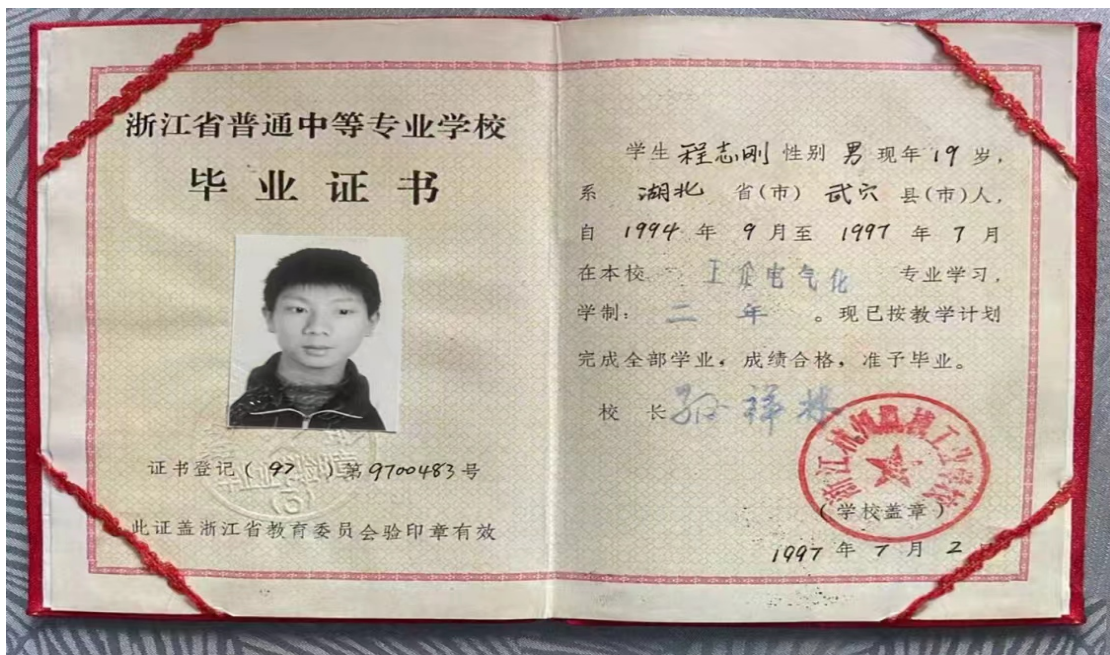 浙江省普通中等专业学校
毕业证书
证书登记(97)第9700483号
此证盖浙江省教育委员会验印章有效
学生 程志刚 性别 男 现年 19 岁,
系 湖北 省(市) 武穴 县(市)人,
自 1994 年 9 月至 1997 年 7 月
在本校 电气化 专业学习,
学制: 二年 。现已按教学计划
完成全部学业,成绩合格,准予毕业。
校长 祥林
浙江杭州机械工业学校
(学校盖章)
1997 年 7 月 2 日